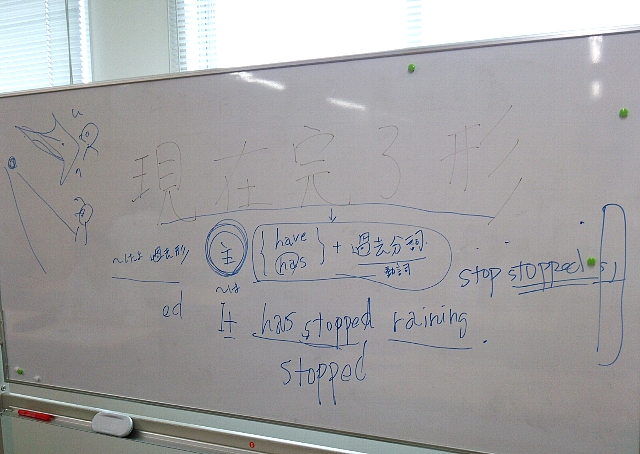 現在完了形
〜は 過去形 主 { have has } + 過去分詞
動詞
〜は
stop stopped
ed It has stopped raining.
stopped